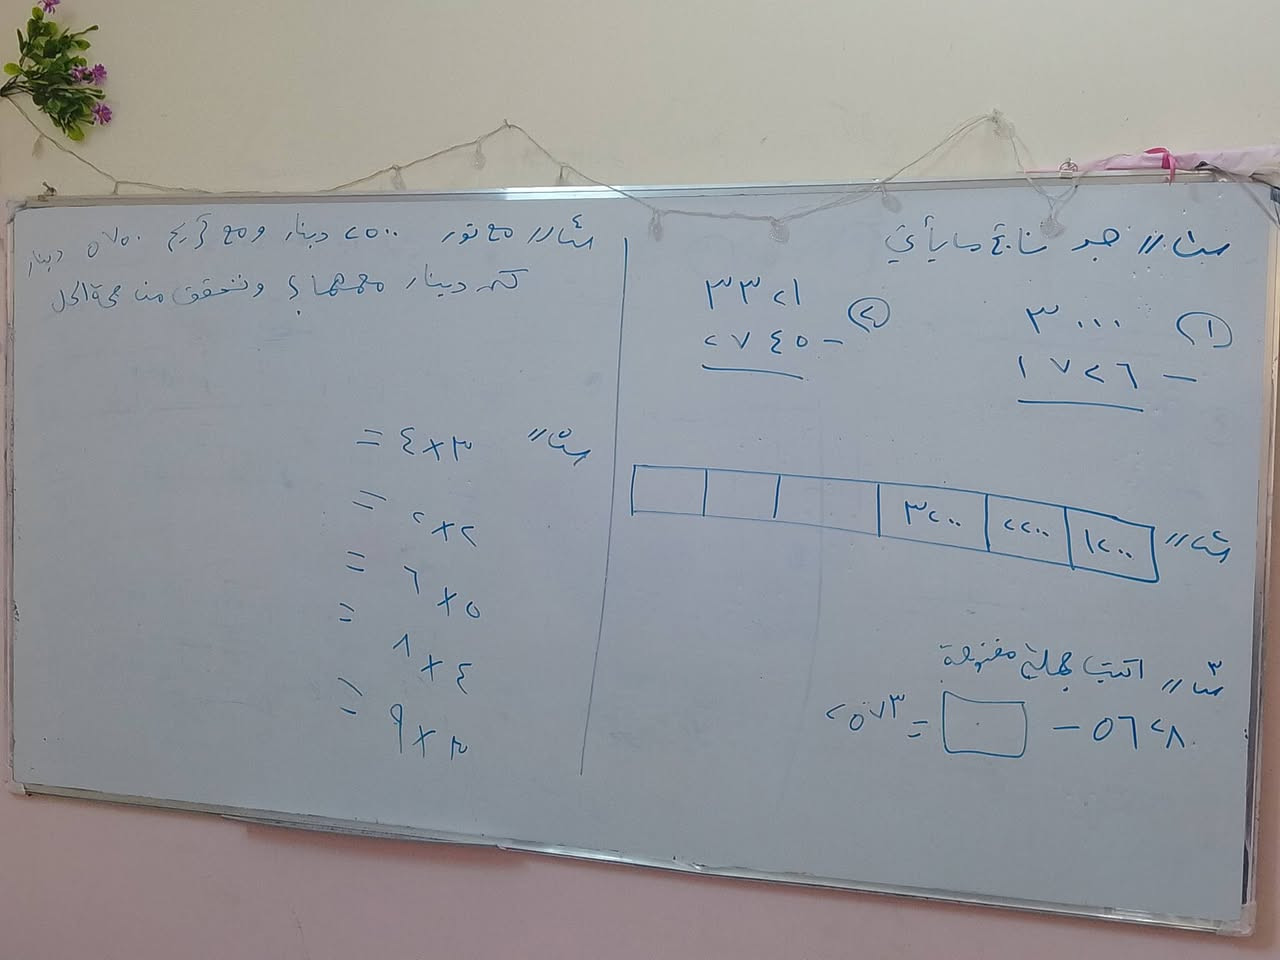 س١// جد ناتج ما يأتي
① ٣٠٠٠
− ١٧٢٦
② ٣٣٢١
− ٢٧٤٥
س٢// ١٢٠٠ ٢٢٠٠ ٣٢٠٠
س٣// اكتب جملة مفتوحة
٥٦٢٨ − = ٢٥٧٣
س٤// مع نور ٢٥٠٠ دينار ومع مريم ٥٧٥٠ دينار
كم دينار معهما؟ وتحقق من صحة الحل
س٥// ٣ × ٤ =
٢ × ٢ =
٥ × ٦ =
٤ × ٨ =
٣ × ٩ =